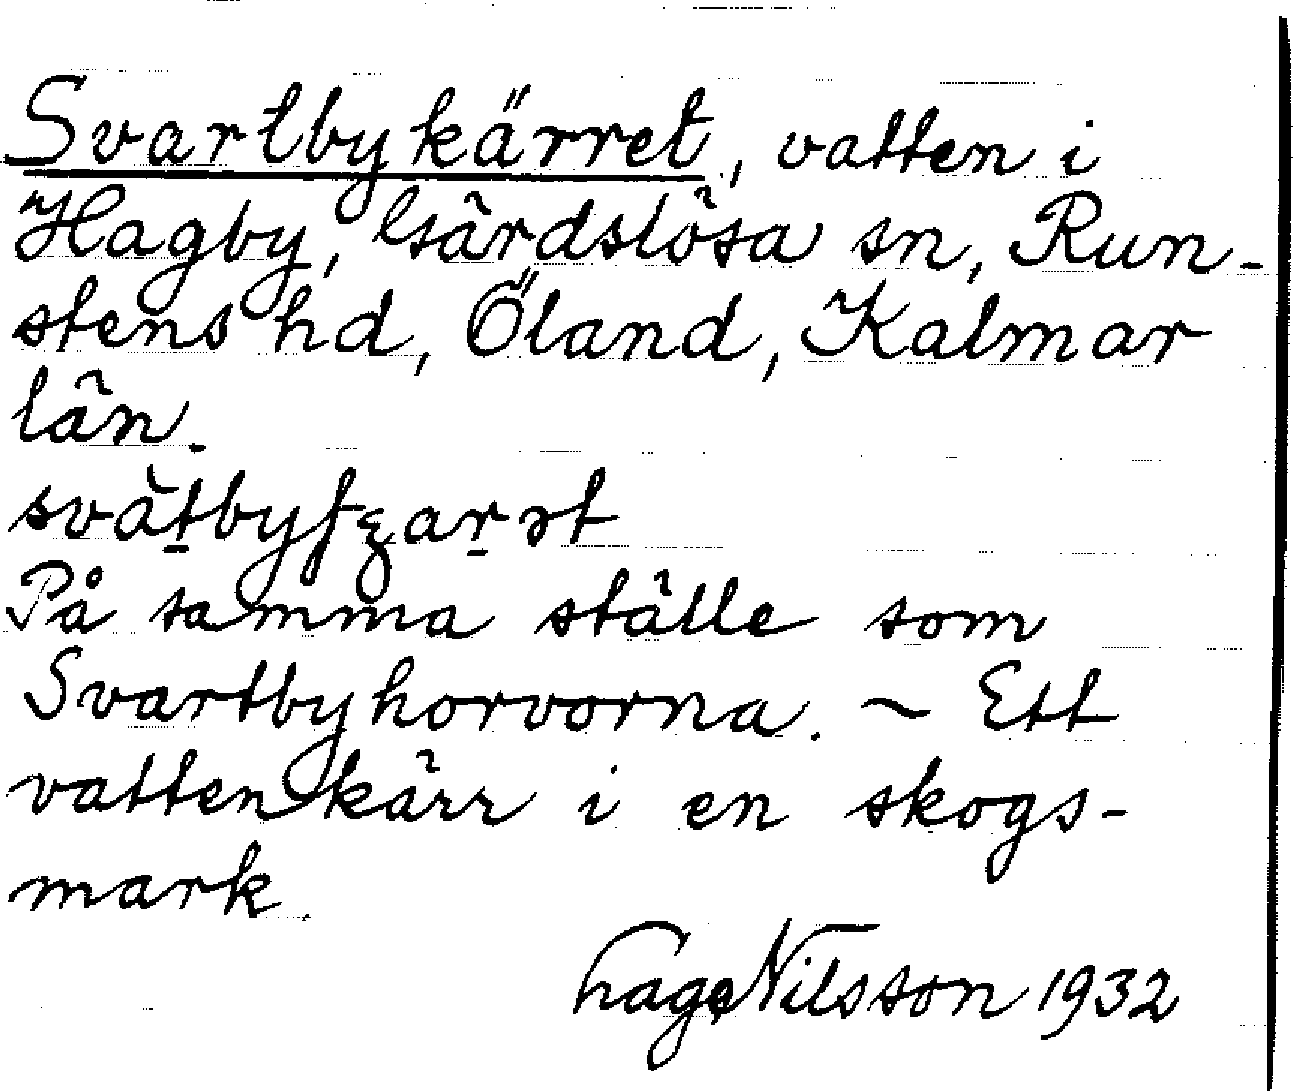 Svartbykärret, vatten i
Hagby, Gärdslösa sn, Run-
stens hd, Öland, Kalmar
län.
På samma ställe som
Svartbyhorvorna. ~ Ett
vattenkärr i en skogs-
mark.
Hage Nilsson 1932